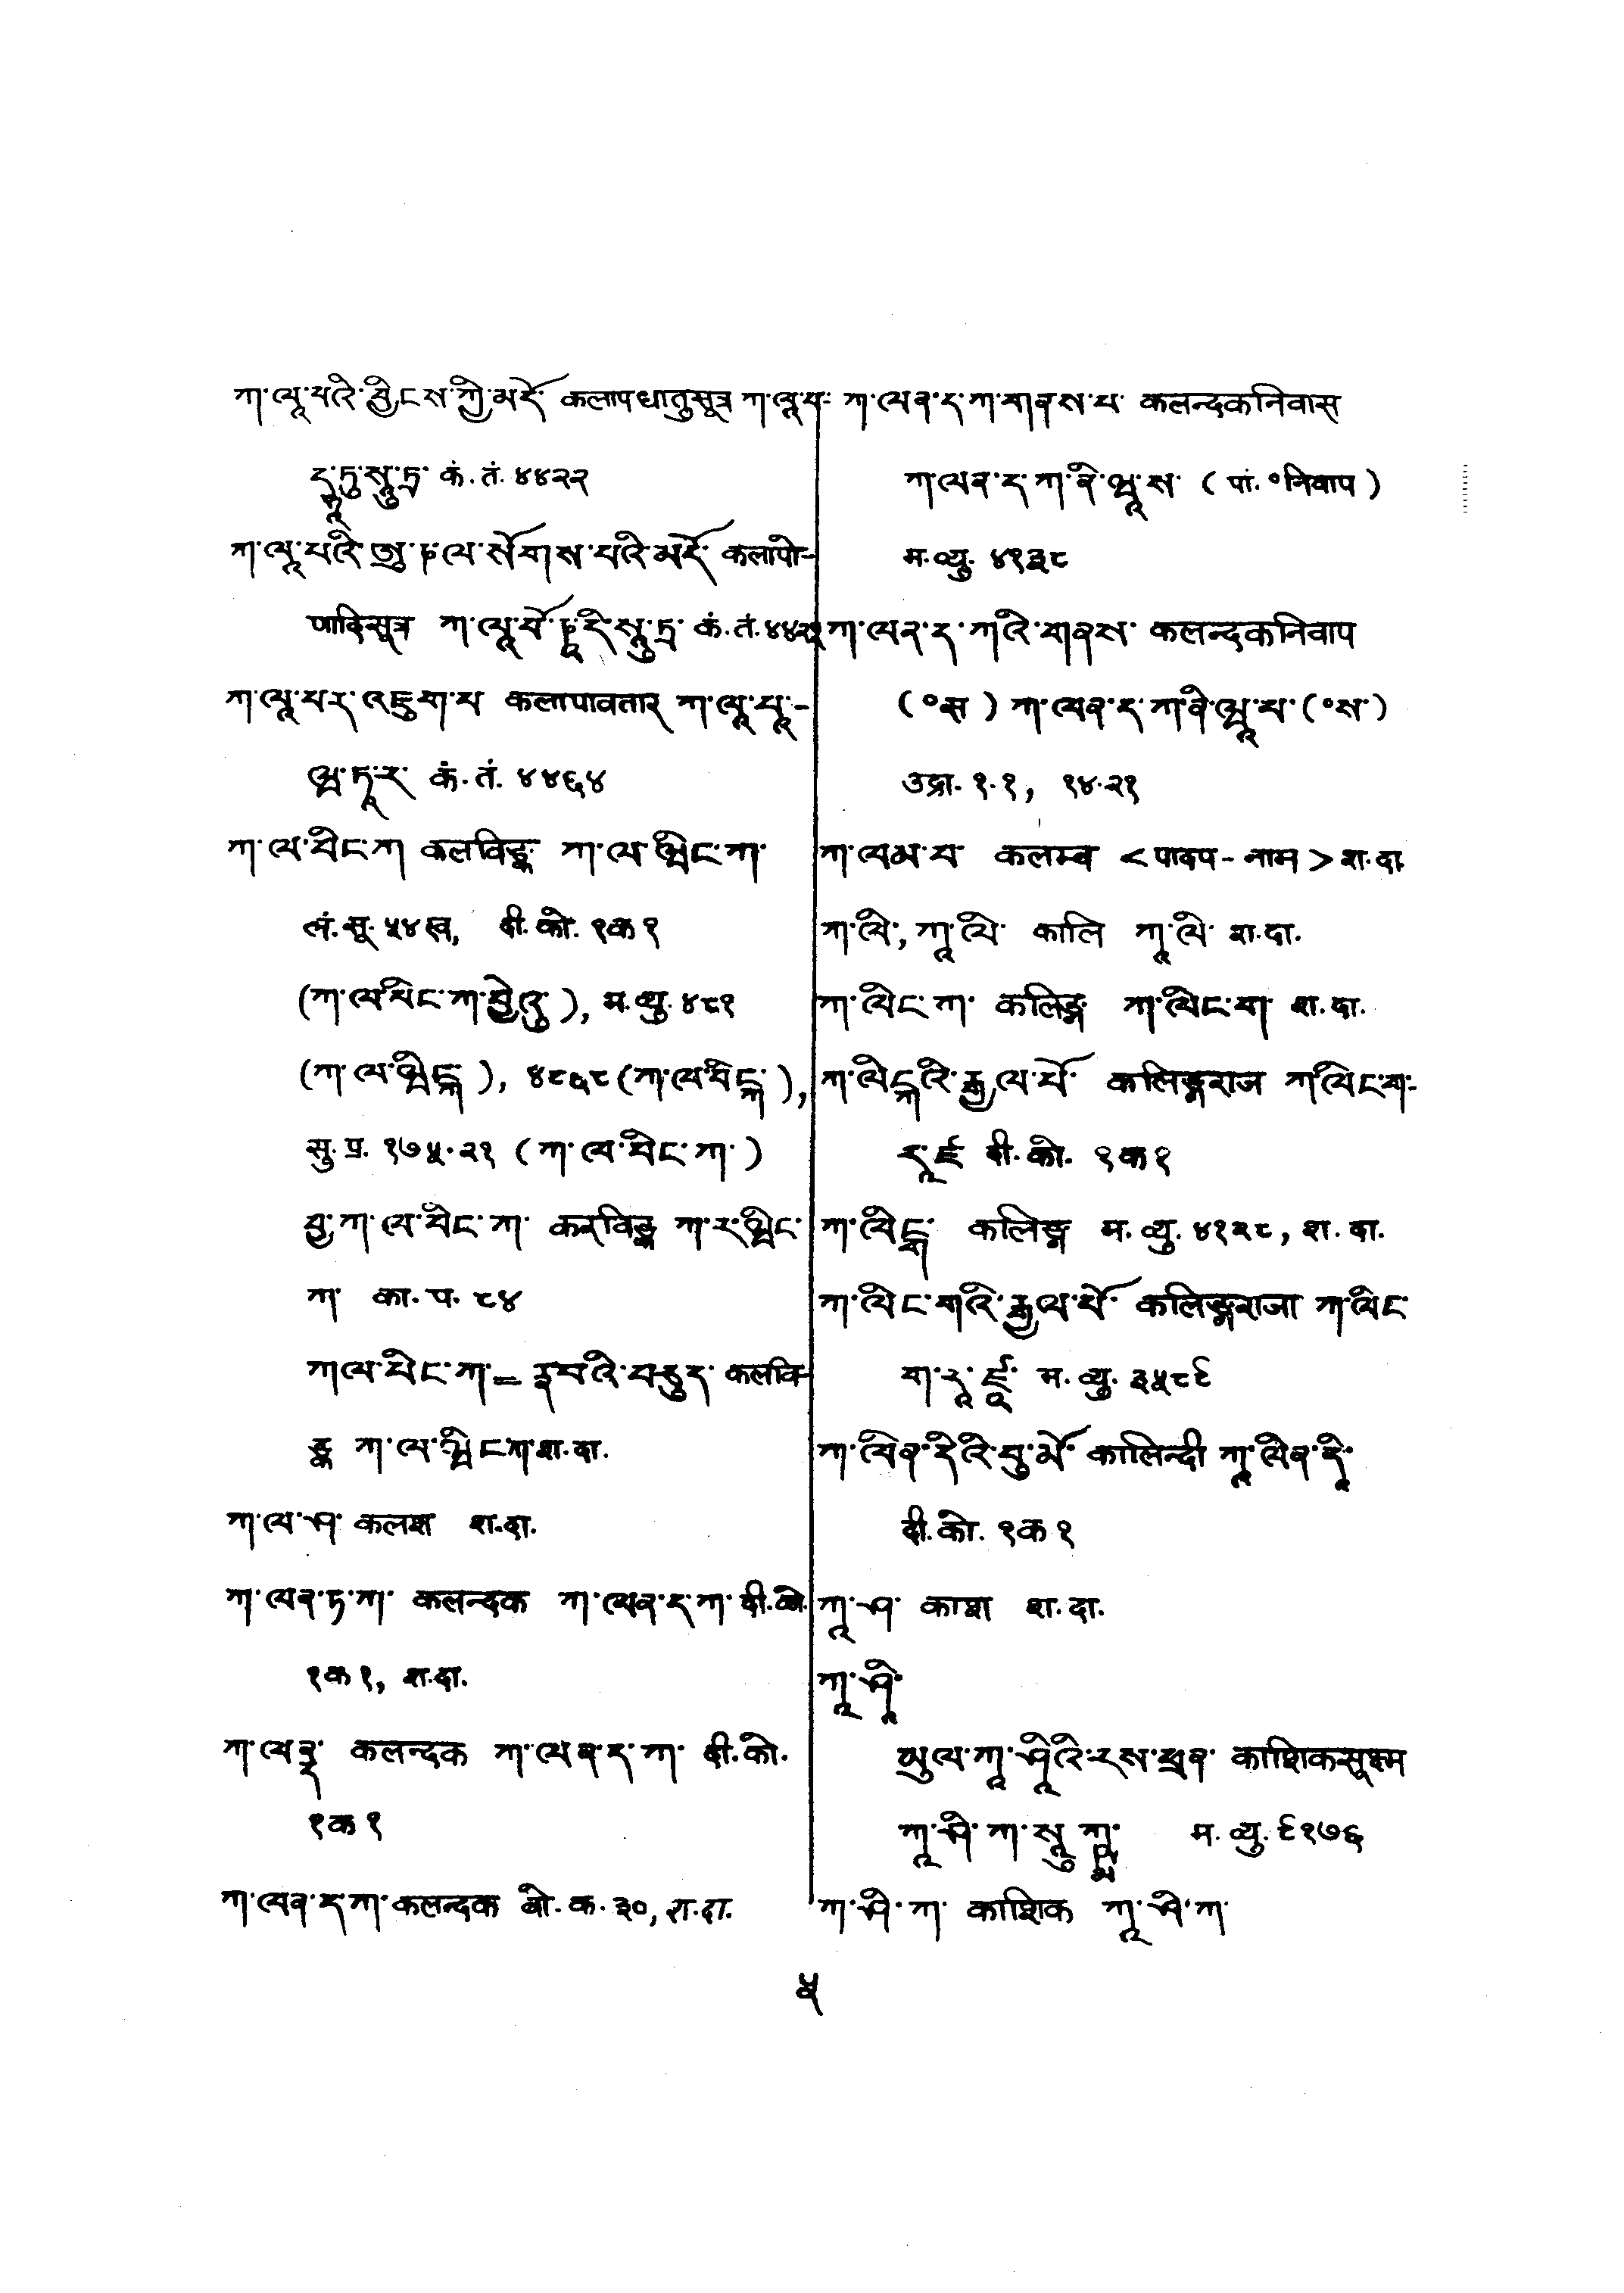 ཀ་ལཱ་པའི་བྱིངས་ཀྱི་མདོ་ कलापधातुसूत्र ཀ་ལཱ་པ-
དྷཱ་ཏུ་སཱུ་ཏྲ་ कं. तं. ४४२२
ཀ་ལཱ་པའི་ཨུ་ཎ་ལ་སོགས་པའི་མདོ་ कलापो-
णादिसूत्र ཀ་ལཱ་པོ་ཎཱ་དི་སཱུ་ཏྲ་ कं. तं.
ཀ་ལཱ་པར་འཇུག་པ कलापावतार ཀ་ལཱ་པཱ་-
ཝ་ཏཱ་ར་ कं. तं. ४४६४
ཀ་ལ་པིང་ཀ कलविङ्क ཀ་ལ་ཝིང་ཀ་
लं. सू. ५४ख, दी. को. १क१
(ཀ་ལ་པིང་ཀ་བྱེའུ་), म. व्यु. ४८१
(ཀ་ལ་ཝིངྐ་), ४८६८ (ཀ་ལ་པིངྐ་),
सु. प्र. १७५.२१ (ཀ་ལ་པིང་ཀ་)
བྱ་ཀ་ལ་པིང་ཀ་ करविङ्क ཀ་ར་ཝིང་
ཀ་ का. प. ८४
ཀ་ལ་པིང་ཀ་= कलवि-
ङ्क ཀ་ལ་ཝིང་ཀ་ श. दा.
ཀ་ལ་ཤ་ कलश श. दा.
ཀ་ལན་ཏ་ཀ་ कलन्दक ཀ་ལན་ད་ཀ་ दी. को.
१क१, श. दा.
ཀ་ལནྡ་ कलन्दक ཀ་ལན་ད་ཀ་ दी. को.
१क१
ཀ་ལན་ད་ཀ་ कलन्दक बो. क. ३०, श. दा.
ཀ་ལན་ད་ཀ་གནས་པ་ कलन्दकनिवास
ཀ་ལན་ད་ཀ་ནི་ཝཱ་ས་ (पां. °निवाप)
म. व्यु. ४१३८
ཀ་ལན་ད་ཀའི་གནས་ कलन्दकनिवाप
(°स) ཀ་ལན་ད་ཀ་ནི་ཝཱ་པ་(°ས་)
उद्रा. १.१, १४.२१
ཀ་ལམ་བ་ कलम्ब < पादप-नाम > श. दा.
ཀ་ལི་, ཀཱ་ལི་ कालि ཀཱ་ལི་ श. दा.
ཀ་ལིང་ཀ་ कलिङ्ग ཀ་ལིང་ག་ श. दा.
ཀ་ལིངྐའི་རྒྱལ་པོ་ कलिङ्गराज ཀ་ལིང་ག-
རཱ་ཛ दी. को. १क१
ཀ་ལིངྒ་ कलिङ्ग म. व्यु. ४१२८, श. दा.
ཀ་ལིང་གའི་རྒྱལ་པོ་ कलिङ्गराजा ཀ་ལིང་
ག་རཱ་ཛཱ་ म. व्यु. ३५८९
ཀ་ལིན་དིའི་བུ་མོ་ कालिन्दी ཀཱ་ལིན་དཱི་
दी. को. १क१
ཀཱ་ཤ་ काश श. दा.
ཀཱ་ཤཱི་
ཡུལ་ཀཱ་ཤཱིའི་རས་ཕྲན་ काशिकसूक्ष्म
ཀཱ་ཤི་ཀ་སཱུ་ཀྵྨ་ म. व्यु. ९१७६
ཀ་ཤི་ཀ་ काशिक ཀཱ་ཤི་ཀ་
५